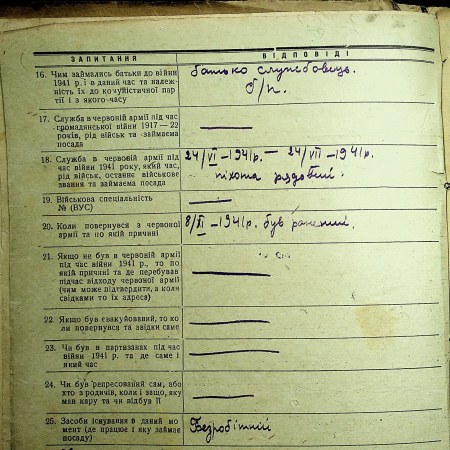 ЗАПИТАННЯ
ВІДПОВІДІ
16. Чим займались батьки до війни
1941 р. і в даний час та належ-
ність їх до комуністичної пар
тії і з якого часу
батько службовець.
б/п.
17. Служба в червоній армії під час
громадянської війни 1917—22
років, рід військ та займаєма
посада
18. Служба в червоній армії під
час війни 1941 року, який час,
рід військ, останнє військове
звання та займаєма посада
24/VI–1941р. — 24/VII–1941р.
піхота рядовий.
19. Військова спеціальність
№ (ВУС)
20. Коли повернувся з червоної
армії та по якій причині
8/XI–1941р. був ранений.
21. Якщо не був в червоній армії
під час війни 1941 р., то по
якій причині та де перебував
підчас відходу червоної армії
(чим може підтвердити, а коли
свідками то їх адреса)
22 Якщо був евакуйований, то ко
ли повернувся та звідки саме
23. Чи був в партизанах під час
війни 1941 р. та де саме і
який час
24. Чи був репресований сам, або
хто з родичів, коли і защо, яку
мав кару та чи відбув її
25. Засоби існування в даний мо
мент (де працює і яку займає
посаду)
Безробітний